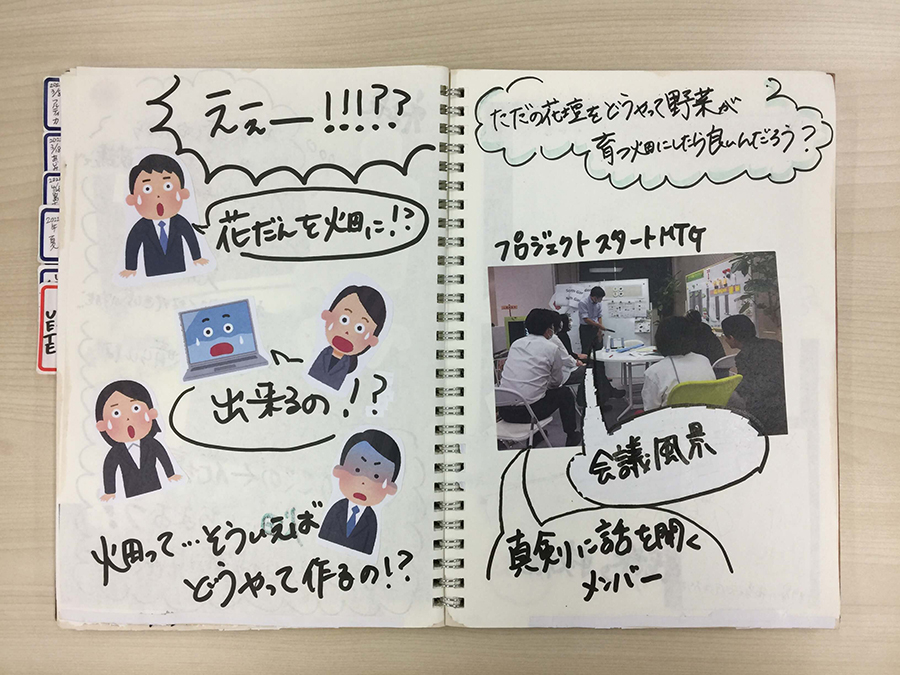 えぇー!!!??
花だんを畑に!?
出来るの!?
畑って…そういえば
どうやって作るの!?
ただの花壇をどうやって野菜が
育つ畑にしたら良いんだろう?
プロジェクトスタートMTG
会議風景
真剣に話を聞く
メンバー
VETE